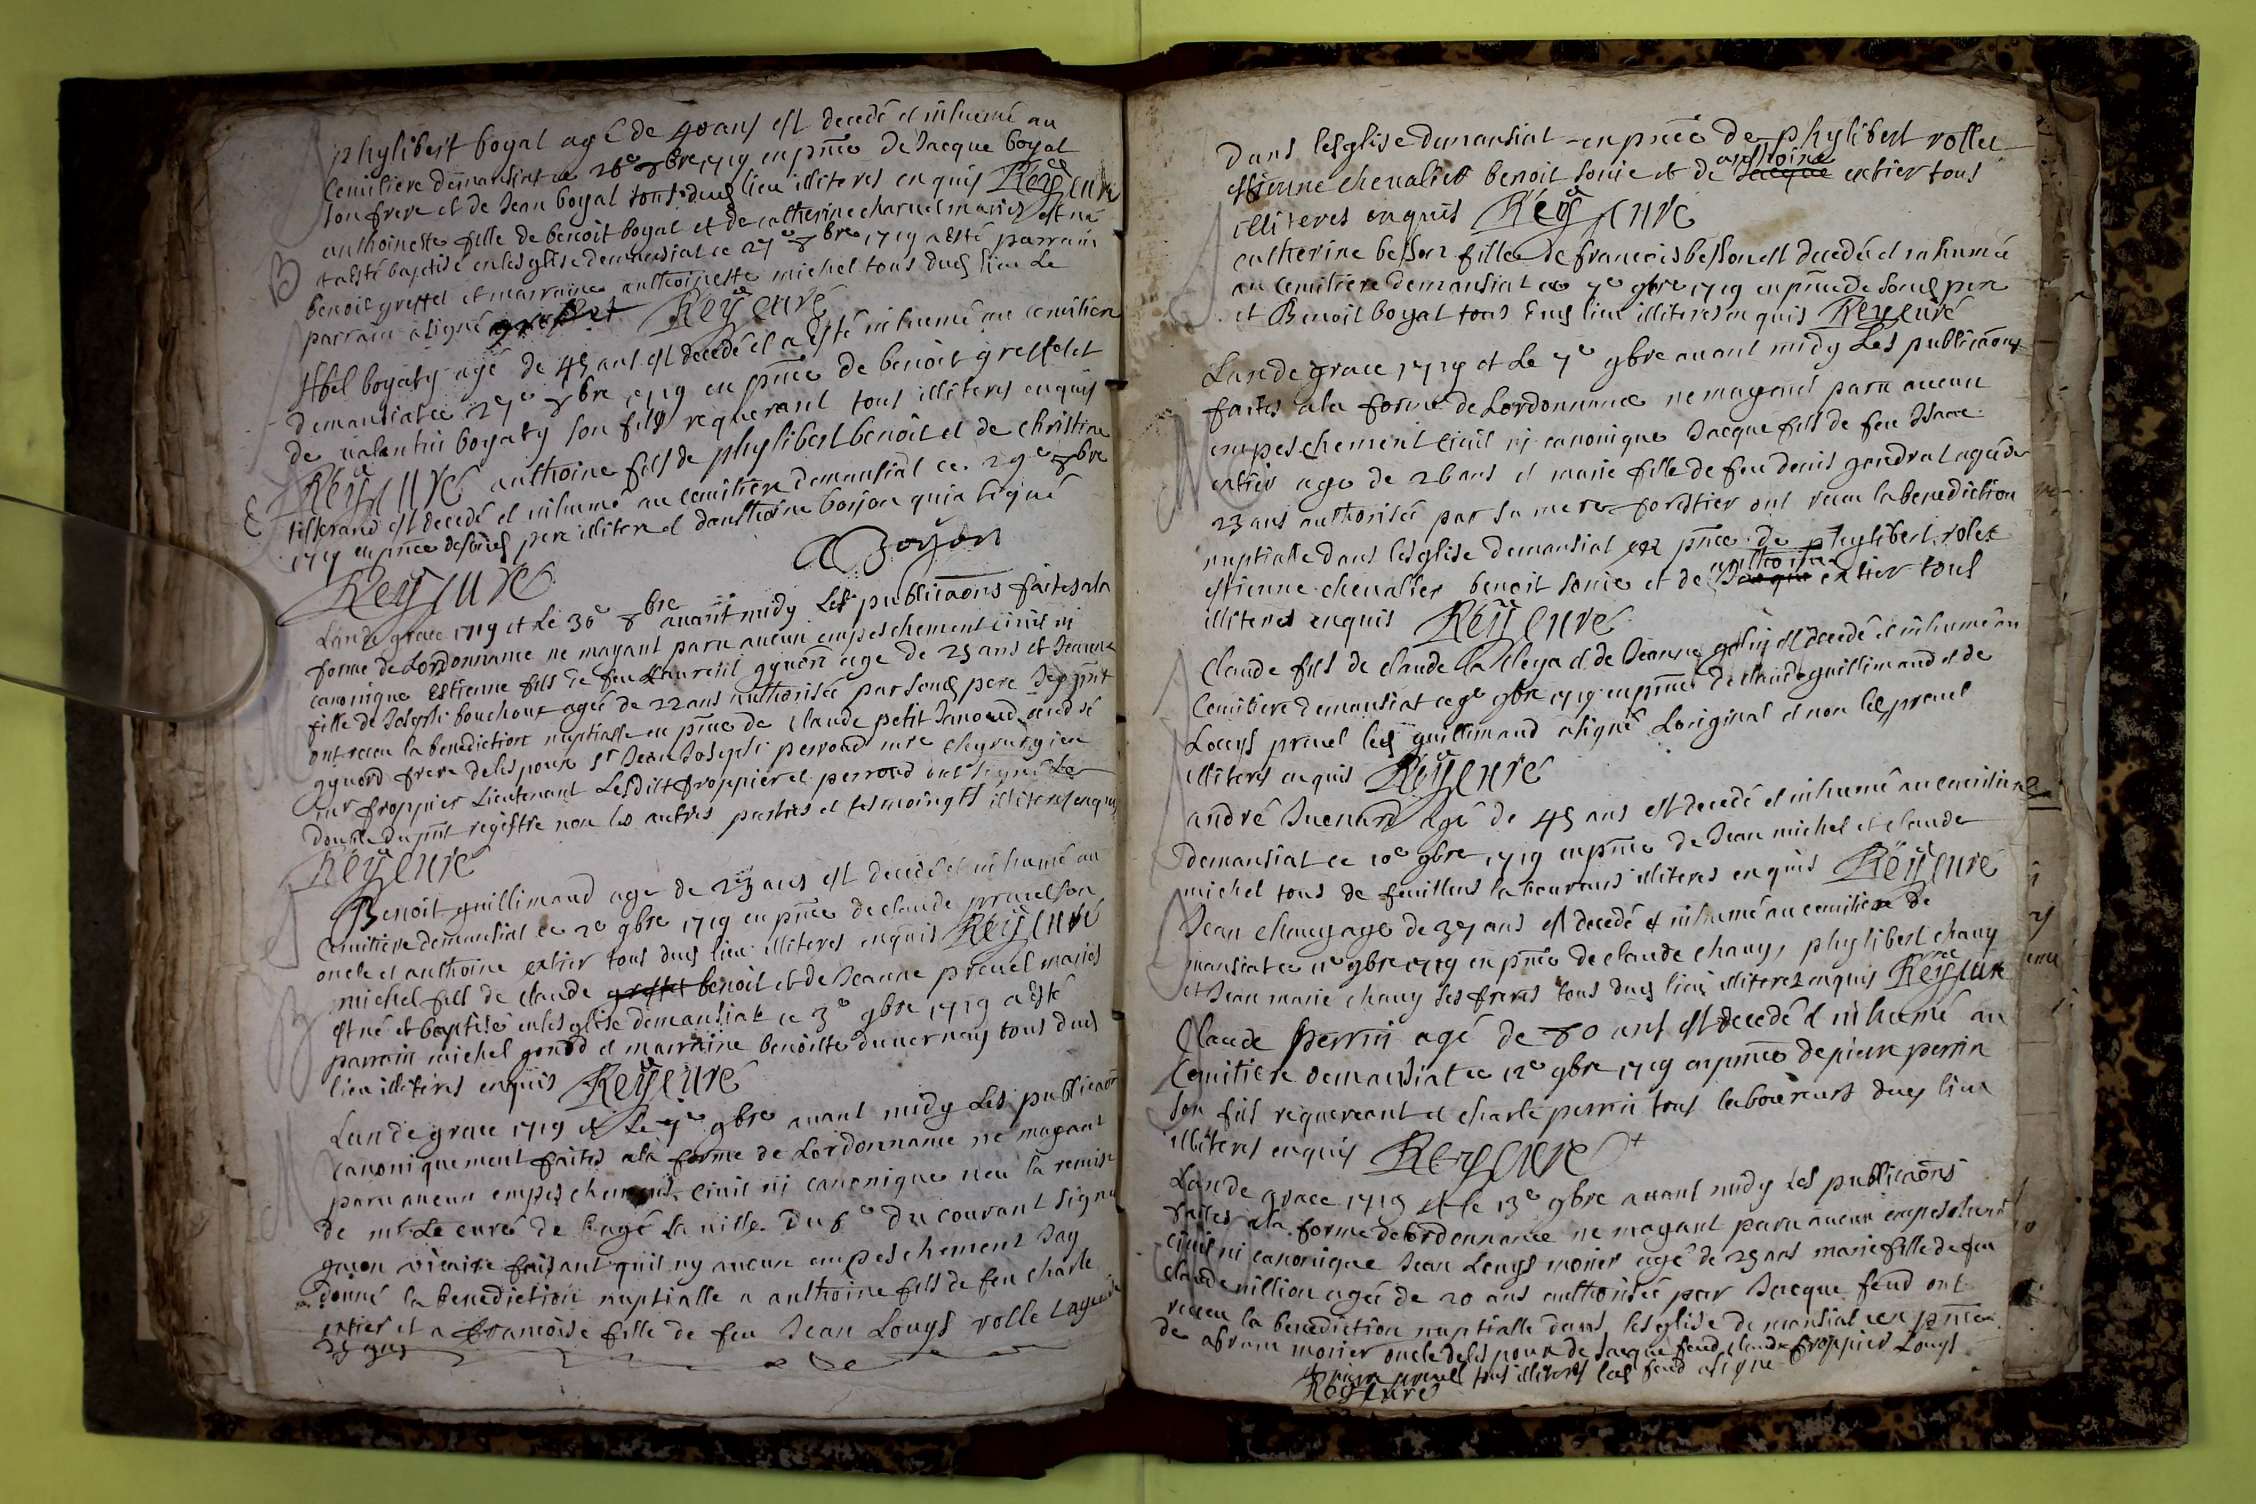 phylibert boyat agé de 40 ans est decedé et inhumé au
Cemitiere demansiat ce 26e 8bre 1719 en pnce de Jacque boyat
son frere et de Jean boyat tous dud lieu illiteres enquis Rey curé
anthoinette fille de benoit boyat et de catherine charnel mariés est né
et a esté baptisé en lesglise demansiat ce 27e 8bre 1719 a esté parrain
benoit greffet et marraine anthoinette michel tous dud lieu Le
parrain a signé greffet Rey curé
Abel boyaty agé de 45 ans est decedé et a esté inhumé au cemitiere
demansiat ce 27e 8bre 1719 en pnce de benoit greffet et
de valentin boyaty son fils requerant tous illiteres enquis
Rey curé anthoine fils de phylibert benoit et de christine
tisserand est decedé et inhumé au cemitiere demansiat ce 29e 8bre
1719 en pnce desond pere illitere et danthoine boyon qui a signé
A Boyon
Rey curé
Lan de grace 1719 et Le 30e 8bre avant midy Les publicaons faites a la
forme de Lordonnance ne mayant paru aucun empeschement civil ni
canonique Estienne fils de feu Laurent gynon age de 25 ans et Jeanne
fille de Joseph bouchoux agée de 22 ans authorisée par sond pere
ont receu la benediction nuptialle en pnce de claude petit Janoud
gynord frere delespoux sr Jean Joseph perroud mre chyrurgien
sieur froppier Lieutenant Lesdits froppier et perroud ont signé Le
double du pnt registre non les autres parties et tesmoingts illiteres enquis
Rey curé
Benoit guillimaud age de 23 ans est decedé et inhumé au
Cemitiere demansiat ce 2e 9bre 1719 en pnce de claude pruvel son
oncle et anthoine extier tous dud lieu illiteres enquis Rey curé
michel fils de claude greffet benoit et de Jeanne pruvel mariés
est né et baptisé en lesglise demansiat ce 3e 9bre 1719 a esté
parrain michel gonod et marraine benoiste duvernay tous dud
lieu illiteres enquis Rey curé
Lan de grace 1719 et Le 7e 9bre avant midy Les publicaons
canoniquement faites a la forme de Lordonnance ne mayant
paru aucun empeschement civil ni canonique veu la remise
de mr Le curé de bagé la ville Du 6e Du courant signé
vicaire faisant quil ny aucun empeschement Jay
donné la benediction nuptialle a anthoine fils de feu charle
extier et a francoise fille de feu Jean Louys rollet agée de
25 ans
dans lesglise demansiat en pnce de phylibert rollet
estienne chevalier benoit sonie et de Jacque anthoine extier tous
illiteres enquis Rey curé
catherine besson fille de francois besson est decedée et inhumée
au cemitiere demansiat ce 7e 9bre 1719 en pnce de sond pere
et Benoit boyat tous dud lieu illiteres enquis Rey curé
Lan de grace 1719 et Le 7e 9bre avant midy Les publicaons
faites a la forme de Lordonnance ne mayant paru aucun
empeschement civil ni canonique Jacque fils de feu Isaac
extier age de 26 ans et marie fille de feu denis gendrat agée de
23 ans authorisée par sa mere forestier ont receu la benediction
nuptialle dans lesglise demansiat en pnce de phylibert rolet
estienne chevalier benoit sonie et de Jacque anthoine extier tous
illiteres enquis Rey curé
Claude fils de claude et de Jeanne est decedé et inhumé au
Cemitiere demansiat ce 9e 9bre 1719 en pnce de claude guillimaud et de
Louys pruvel led guillimaud a signé Loriginal et non led pruvel
illiteres enquis Rey curé
andré Juenard agé de 45 ans est decedé et inhumé au cemitiere
demansiat ce 10e 9bre 1719 en pnce de Jean michel et claude
michel tous de feuillens laboureurs illiteres enquis Rey curé
Jean chany age de 37 ans est decedé et inhumé au cemitiere de
mansiat ce 11e 9bre 1719 en pnce de claude chany, phylibert chany
et Jean marie chany ses freres tous dud lieu illiteres enquis Rey curé
Claude perrin agé de 80 ans est decedé et inhumé au
Cemitiere demansiat ce 12e 9bre 1719 en pnce de pierre perrin
son fils requereant et charle perrin tous laboureurs dud lieu
illiteres enquis Rey curé
Lan de grace 1719 et le 13e 9bre avant midy Les publicaons
faites a la forme de Lordonnance ne mayant paru aucun empeschement
civil ni canonique Jean Louys monier agé de 25 ans marie fille de feu
claude million agée de 20 ans authorisée par Jacque feud ont
receu la benediction nuptialle dans lesglise de mansiat en pnce
de abram monier oncle delespoux de Jacque feud claude froppier Louys
pierre pruvel tous illiteres led feud a signé
Rey curé